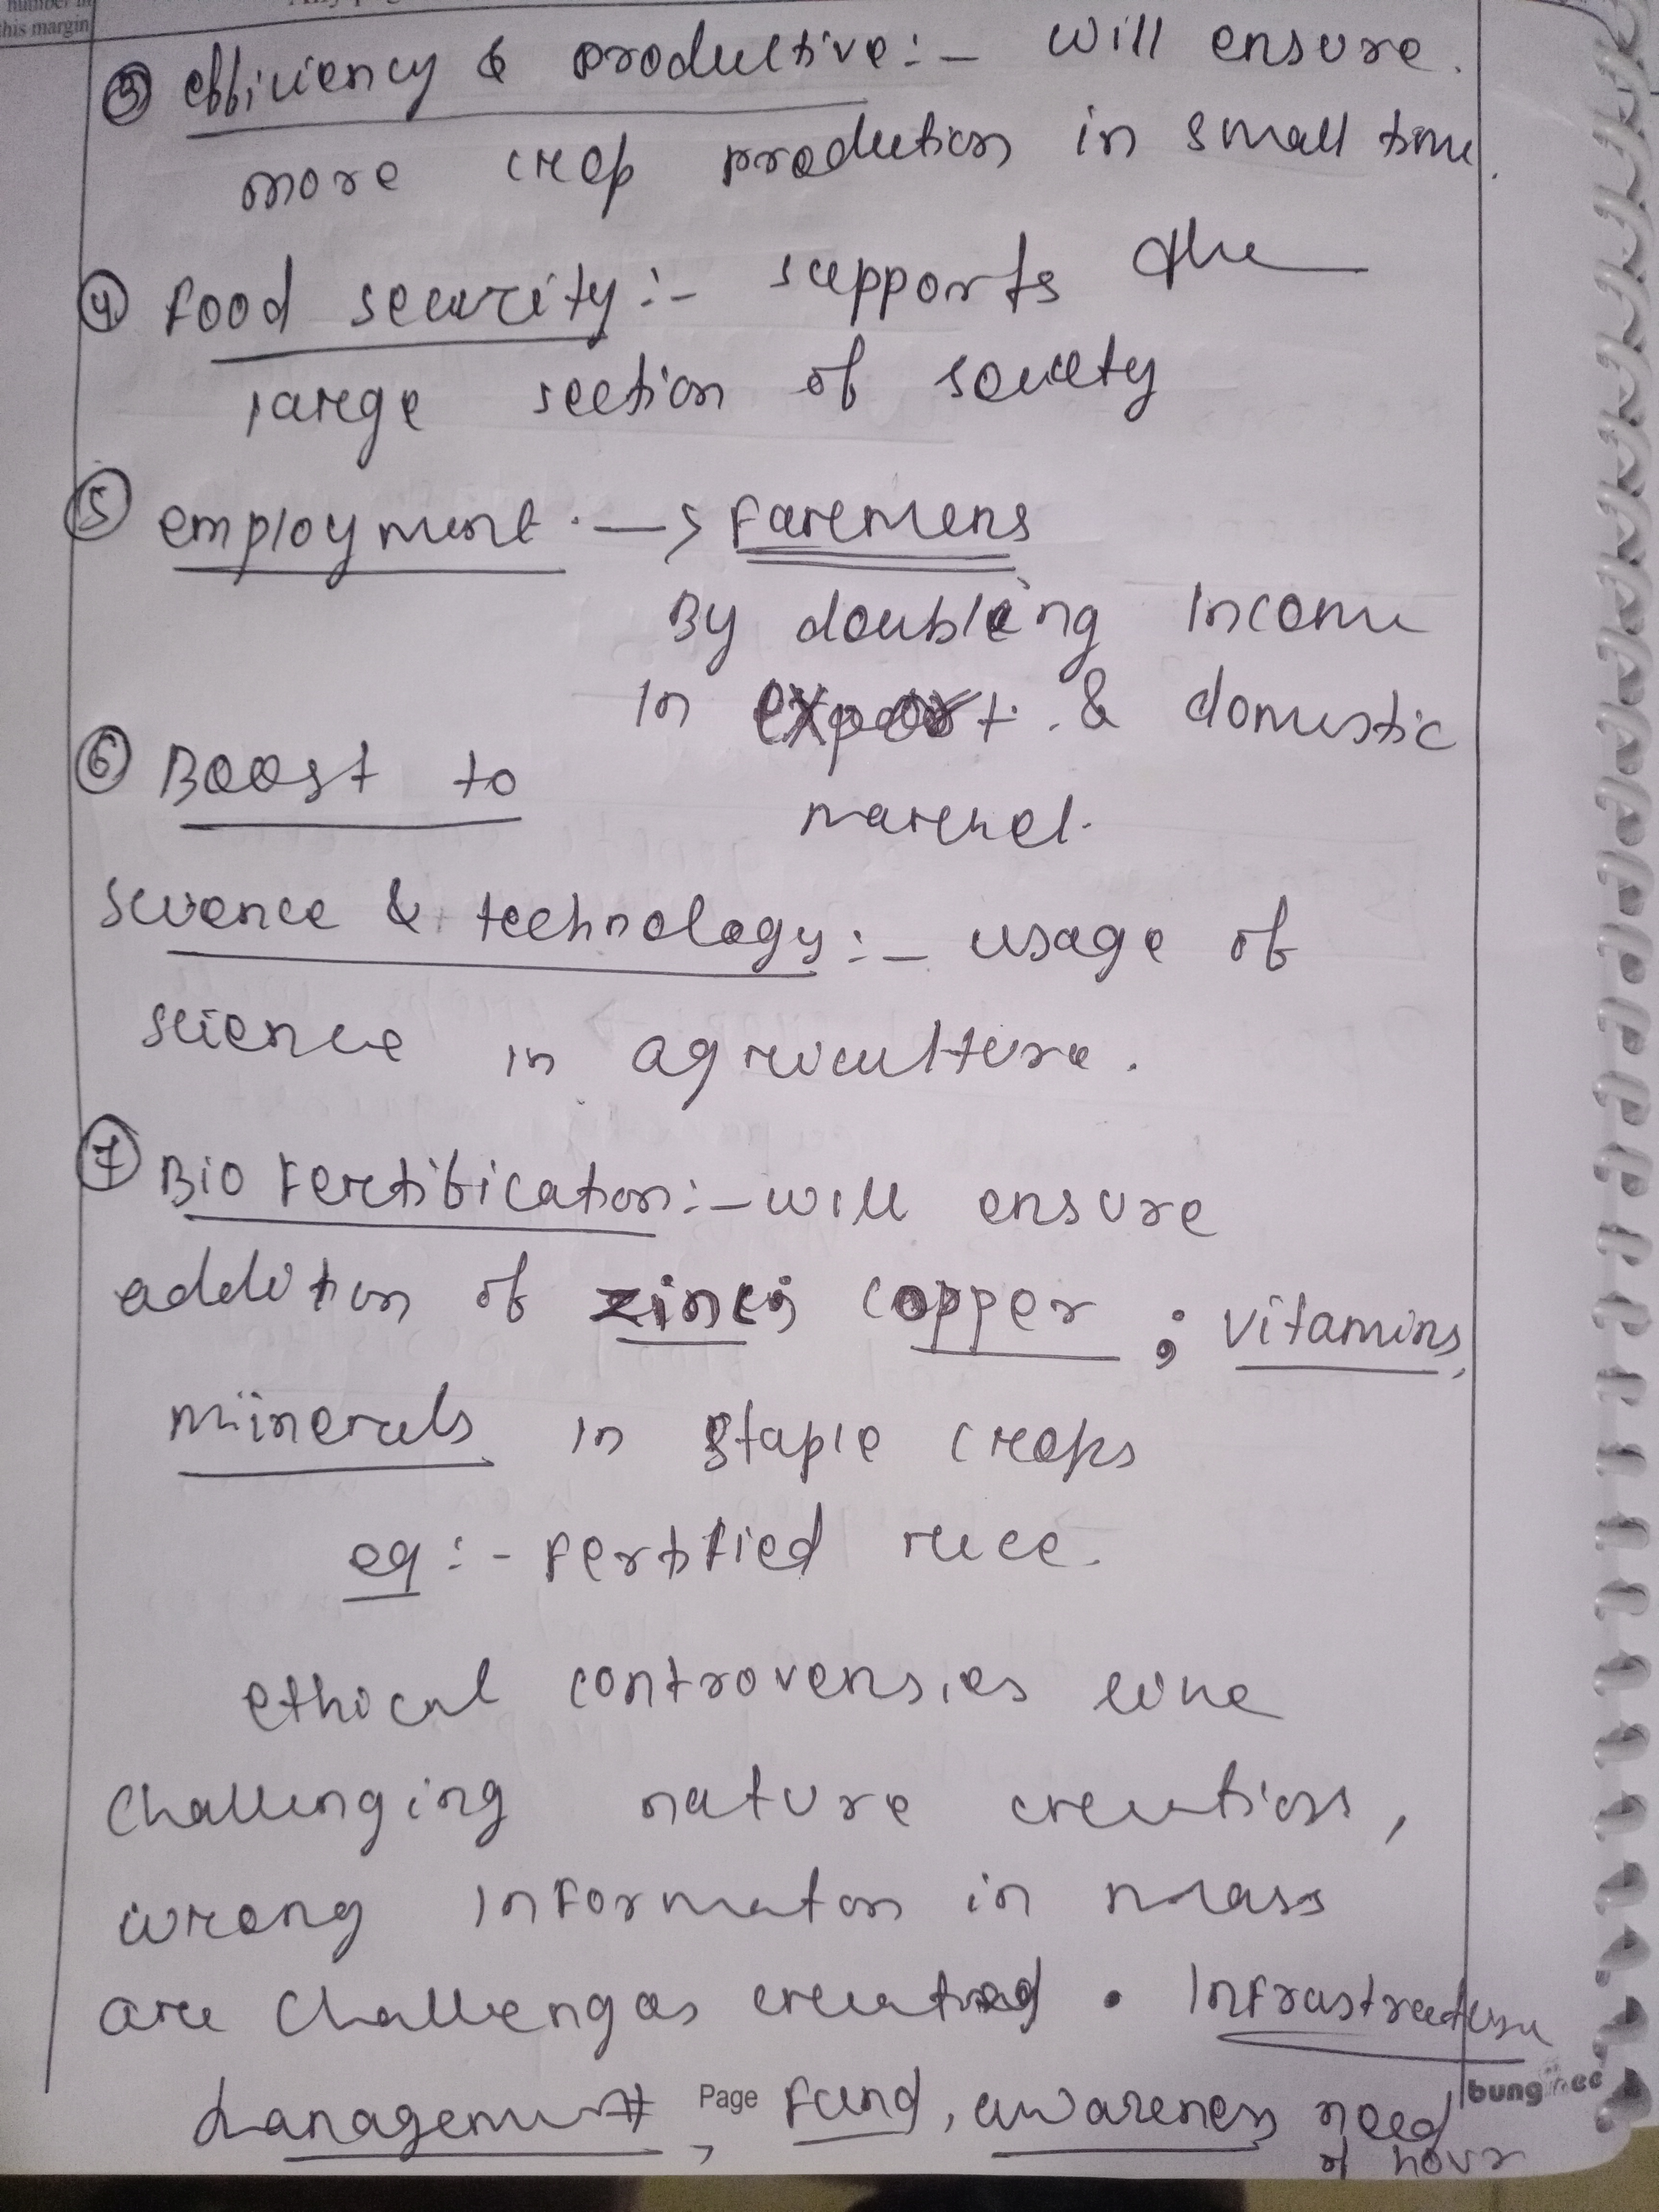 number in
this margin
③ efficiency & productive:- will ensure.
more crop production in small time.
④ Food security:- supports the
large section of society
⑤ employment. —> Farmers
By doubling Income
In export. & domestic
market.
⑥ Boost to
science & technology:- usage of
science in agriculture.
⑦ Bio Fertification:- will ensure
addition of zinc, copper; vitamins,
minerals in staple crops
eg:- Fertified rice.
ethical controversies like
challenging nature creation,
wrong Information in mass
are challenges created. Infrastructure
management, Fund, awareness need
of hour
Page